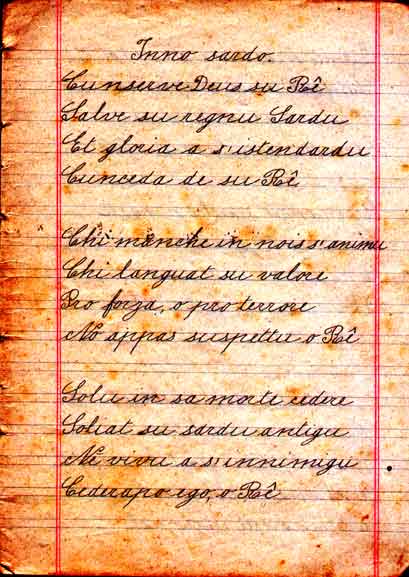 Inno sardo.
Cunserve Deus su Rê
Salve su regnu Sardu
Et gloria a s'istendardu
Cunceda de su Rê
Chi manche in nois s'animu
Chi languat su valore
Pro forza, o pro terrore
No appas suspettu o Rê
Solu in sa morte cedere
Soliat su sardu antigu
Ne vivu a s'innimigu
Cederapo ego, o Rê